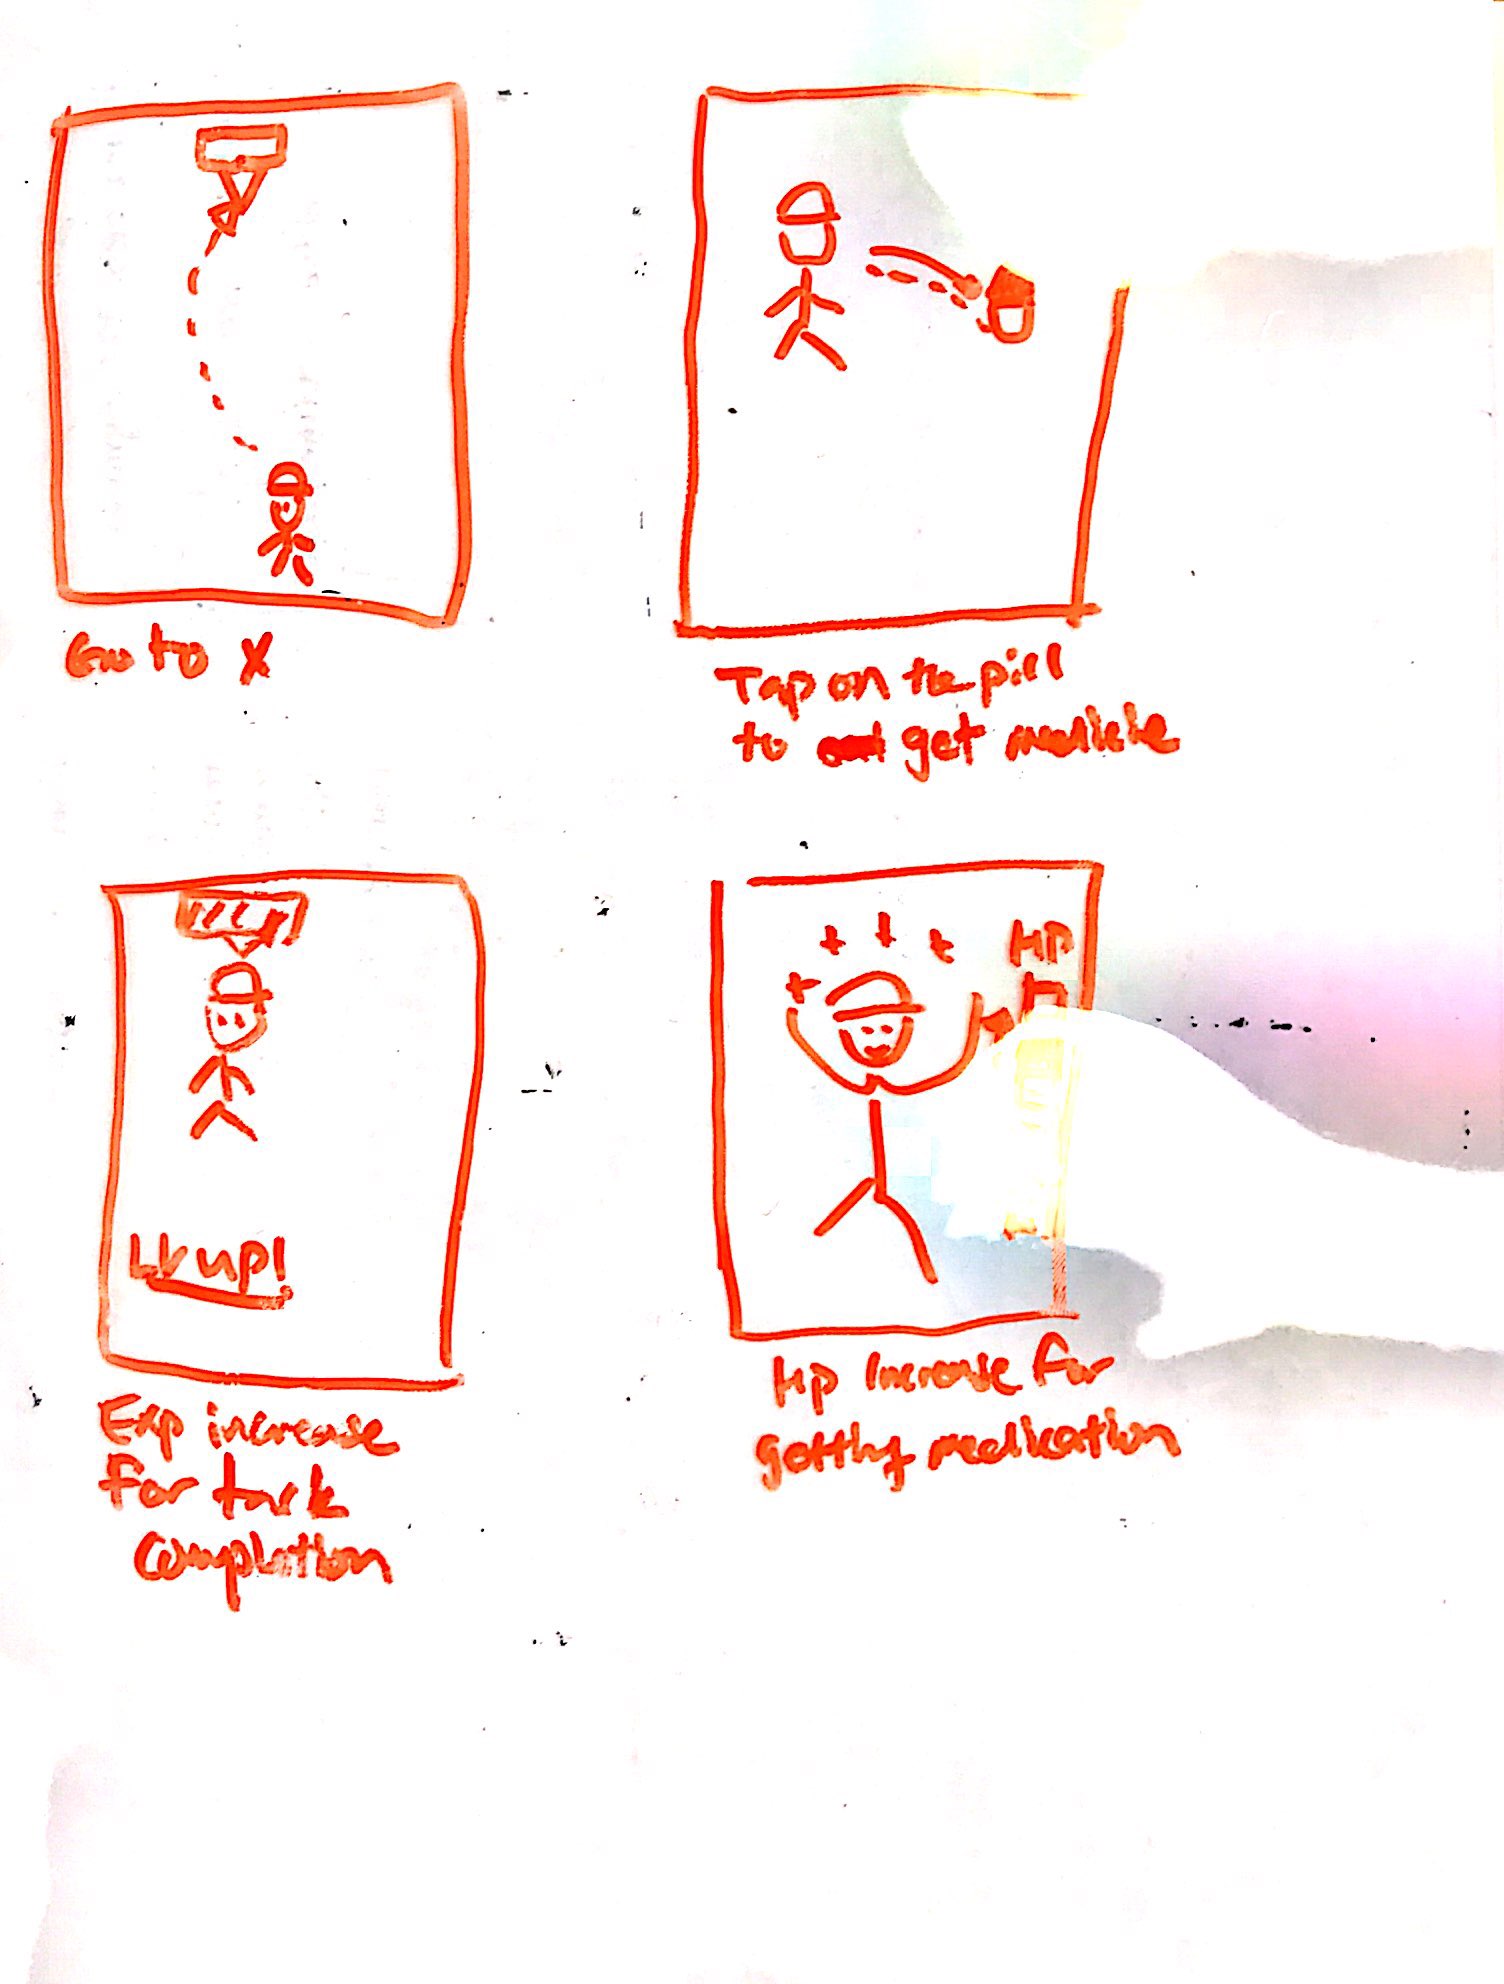 Go to X
Tap on the pill
to get medicie
LV up!
Exp increase
for task
completion
HP
Hp Increase for
getting medication